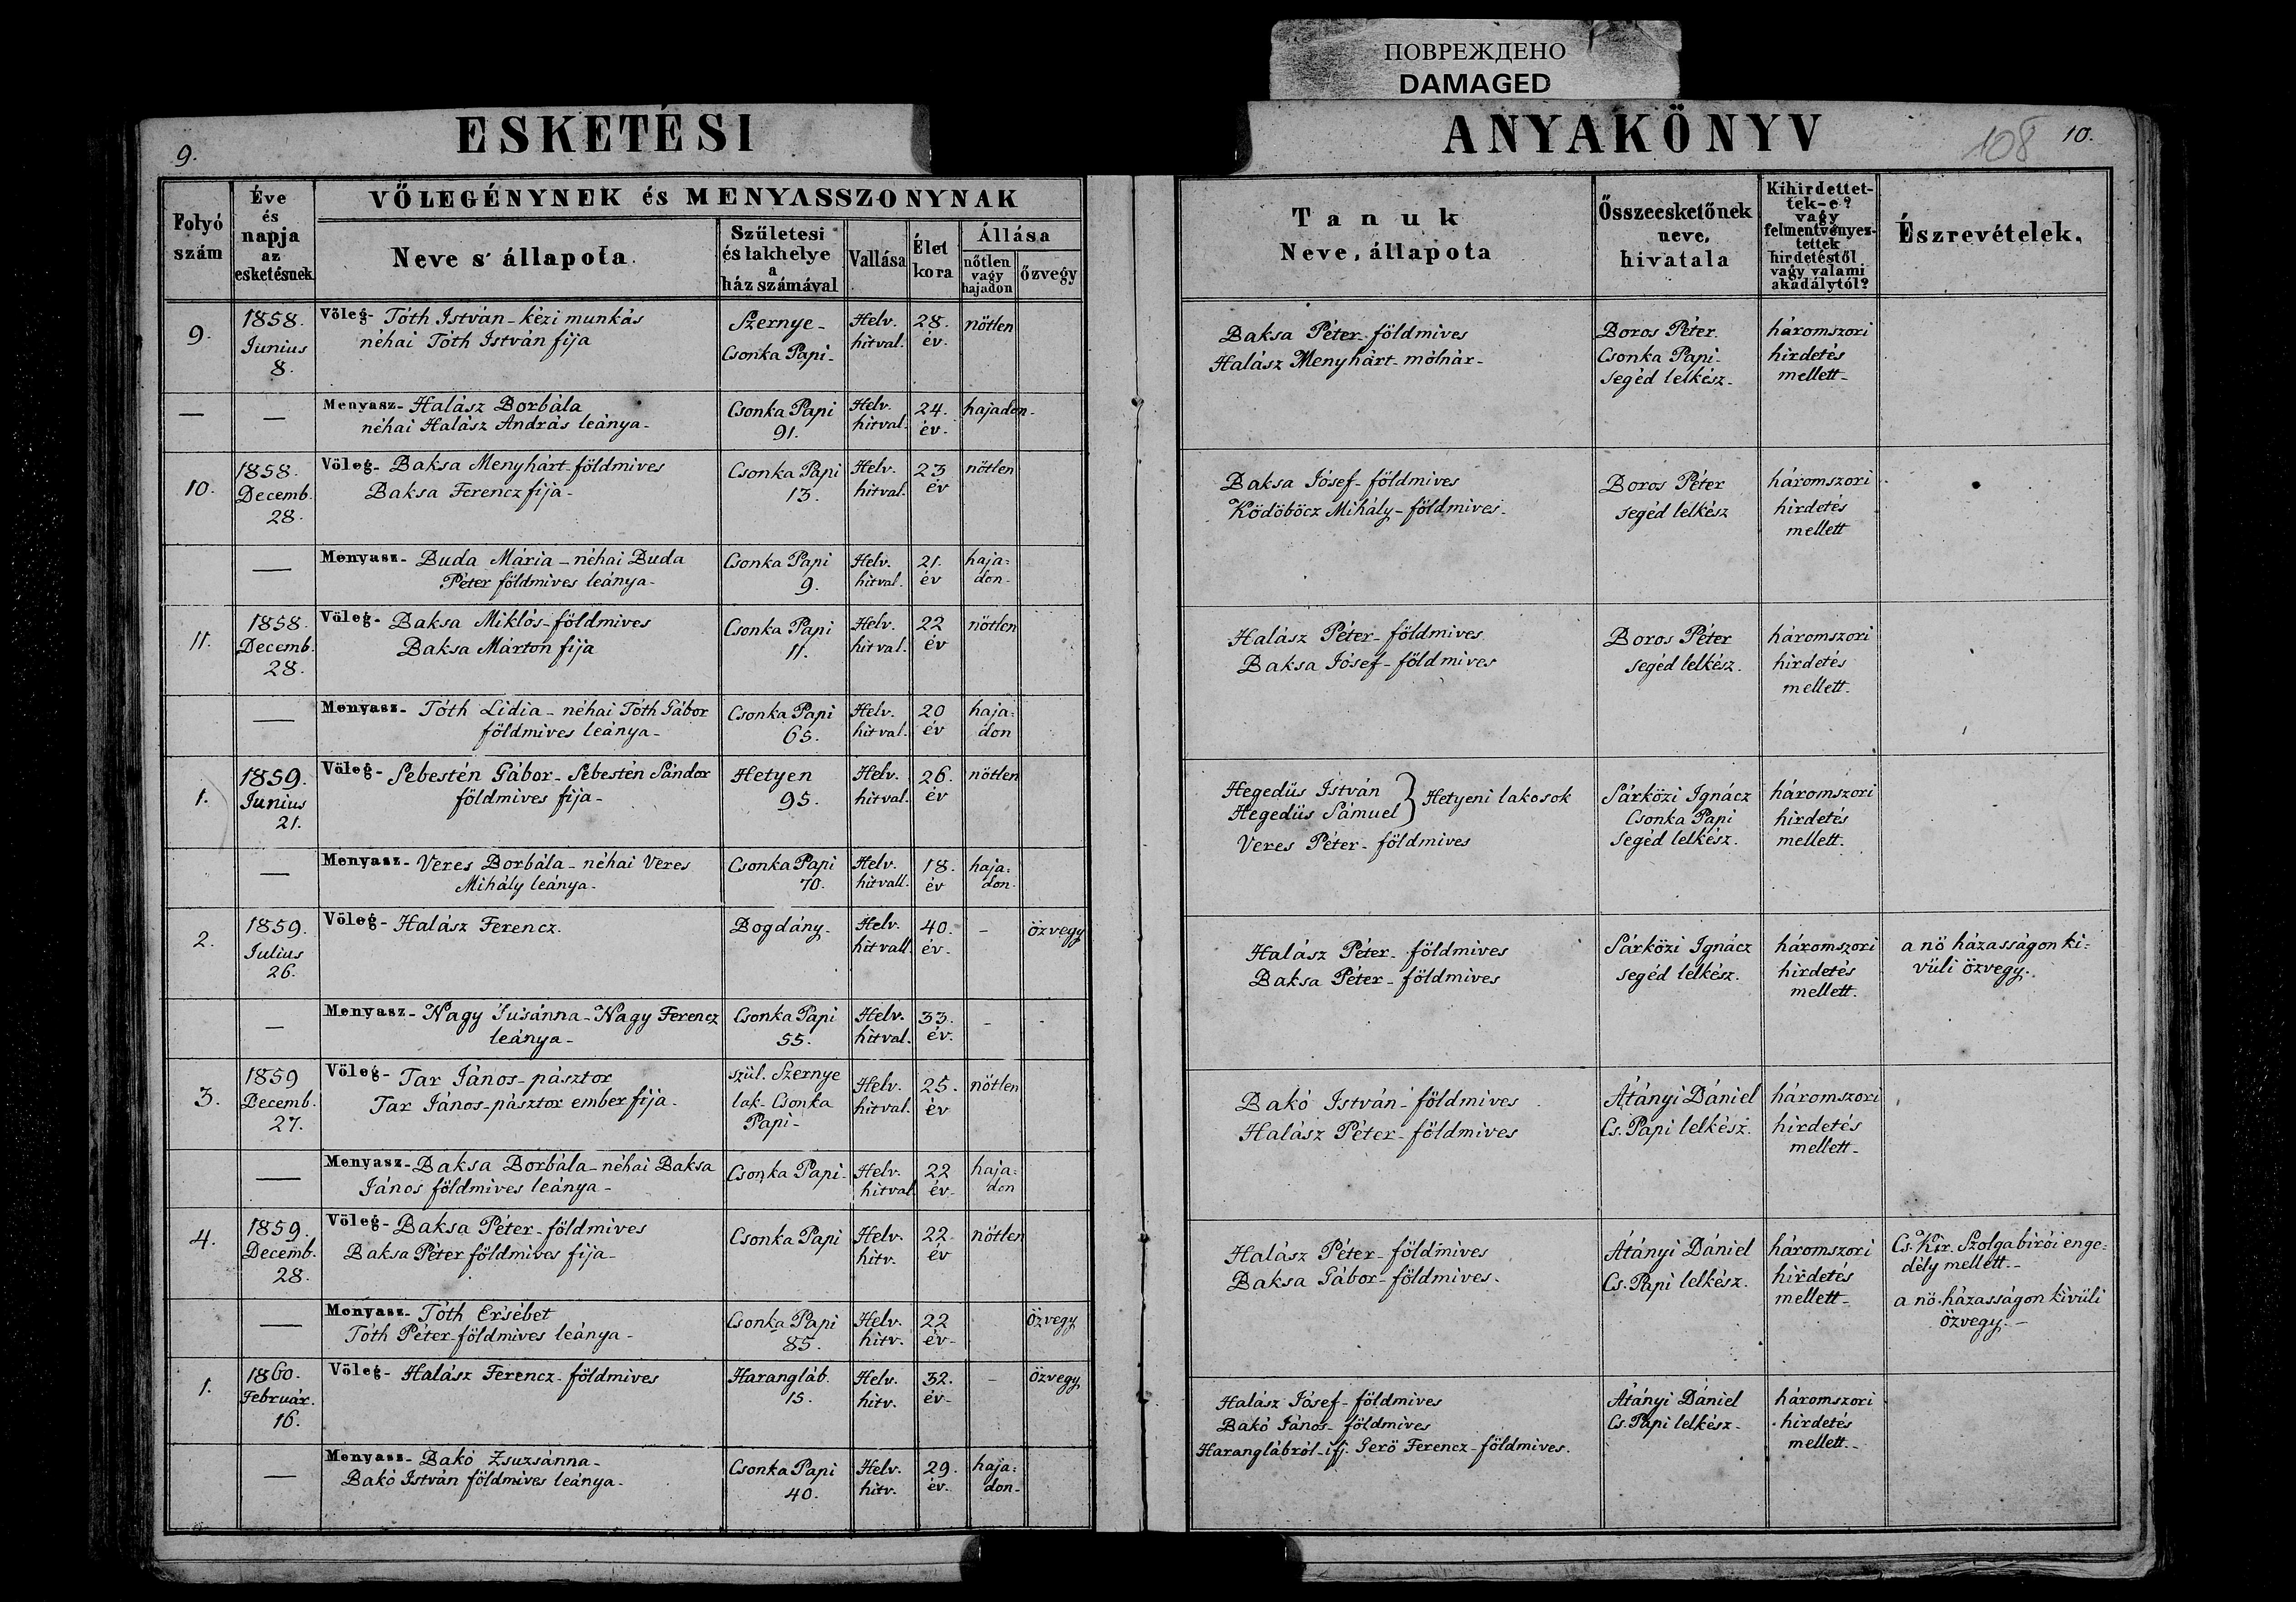 ПОВРЕЖДЕНО
DAMAGED
9.
ESKETÉSI
Folyó szám
Éve és napja az esketésnek
VŐLEGÉNYNEK és MENYASSZONYNAK
Neve s' állapota.
Születesi és lakhelye a ház számával
Vallása
Élet kora
Állása
nőtlen vagy hajadon
özvegy
9.
1858.
Iunius
8.
Vőleg- Tóth István - kézi munkás
néhai Tóth István fija
Szernye-
Csonka Papi-
Helv.
hitval.
28.
év.
nötlen
Menyasz- Halász Borbála
néhai Halász András leánya-
Csonka Papi
91.
Helv.
hitval.
24.
év.
hajadon-
10.
1858.
Decemb.
28.
Vőleg- Baksa Menyhárt-földmives
Baksa Ferencz fija-
Csonka Papi
13.
Helv.
hitval.
23
év
nötlen
Menyasz- Buda Mária - néhai Buda
Péter földmives leánya-
Csonka Papi
9.
Helv.
hitval.
21.
év
haja=
don-
11.
1858.
Decemb.
28.
Vőleg- Baksa Miklós-földmives
Baksa Márton fija
Csonka Papi
11.
Helv.
hitval.
22
év
nötlen
Menyasz- Tóth Lidia - néhai Tóth Gábor
földmives leánya-
Csonka Papi
65.
Helv.
hitval.
20
év
haja=
don
1.
1859.
Iunius
21.
Vőleg- Sebestén Gábor- Sebestén Sándor
földmives fija-
Hetyen
95.
Helv.
hitval.
26.
év
nötlen
Menyasz- Veres Borbála - néhai Veres
Mihály leánya-
Csonka Papi
70.
Helv.
hitvall.
18.
év
haja=
don.
2.
1859.
Iulius
26.
Vőleg- Halász Ferencz.
Bogdány-
Helv.
hitvall.
40.
év.
-
özvegy
Menyasz- Nagy Susánna - Nagy Ferencz
leánya-
Csonka Papi
55.
Helv.
hitval.
33.
év.
-
3.
1859
Decemb.
27.
Vőleg- Tar János - pásztor
Tar János-pásztor ember fija-
szül. Szernye
lak- Csonka
Papi-
Helv.
hitval.
25.
év
nötlen
Menyasz- Baksa Borbála - néhai Baksa
János földmives leánya-
Csonka Papi-
Helv.
hitval.
22
év-
haja=
don
4.
1859.
Decemb.
28.
Vőleg- Baksa Péter-földmives
Baksa Péter földmives fija-
Csonka Papi
Helv.
hitv.
22.
év
nötlen
Menyasz- Tóth Ersébet
Tóth Péter-földmives leánya-
Csonka Papi
85.
Helv.
hitv.
22
év-
Özvegy
1.
1860.
Február.
16.
Vőleg- Halász Ferencz - földmives
Harangláb.
15.
Helv.
hitv.
32.
év-
-
özvegy
Menyasz- Bakó Zsuzsánna-
Bakó István földmives leánya-
Csonka Papi
40.
Helv.
hitv.
29.
év.
haja=
don-
ANYAKÖNYV
108
10.
Tanuk
Neve, állapota
Összeesketőnek neve, hivatala
Kihirdettet-
tek-e?
vagy
felmentvényez-
tettek
hirdetéstől
vagy valami
akadálytól?
Észrevételek.
Baksa Péter-földmives
Halász Menyhárt-mólnár-
Boros Péter.
Csonka Papi-
segéd lelkész-
háromszori
hirdetés
mellett-
Baksa Iósef-földmives
Ködöböcz Mihály-földmives-
Boros Péter
segéd lelkész
háromszori
hirdetés
mellett
Halász Péter-földmives
Baksa Iósef-földmives
Boros Péter
segéd lelkész.
háromszori
hirdetés
mellett-
Hegedüs István
Hegedüs Sámuel } Hetyeni lakosok
Veres Péter-földmives
Sárközi Ignácz
Csonka Papi
segéd lelkész.
háromszori
hirdetés
mellett.
Halász Péter-földmives
Baksa Péter-földmives
Sárközi Ignácz
segéd lelkész.
háromszori
hirdetés
mellett.
a nö házasságon ki=
vüli özvegy.
Bakó István-földmives
Halász Péter-földmives
Átányi Dániel
Cs. Papi lelkész.
háromszori
hirdetés
mellett-
Halász Péter-földmives
Baksa Gábor-földmives-
Átányi Dániel
Cs. Papi lelkész.
háromszori
hirdetés
mellett-
Cs. Kir. Szolgabirói enge=
dély mellett.-
a nö-házasságon kivüli
özvegy.-
Halász Iósef-földmives
Bakó János-földmives
Haranglábról-ifj. Gerö Ferencz-földmives.
Átányi Dániel
Cs. Papi lelkész-
háromszori
hirdetés
mellett.-